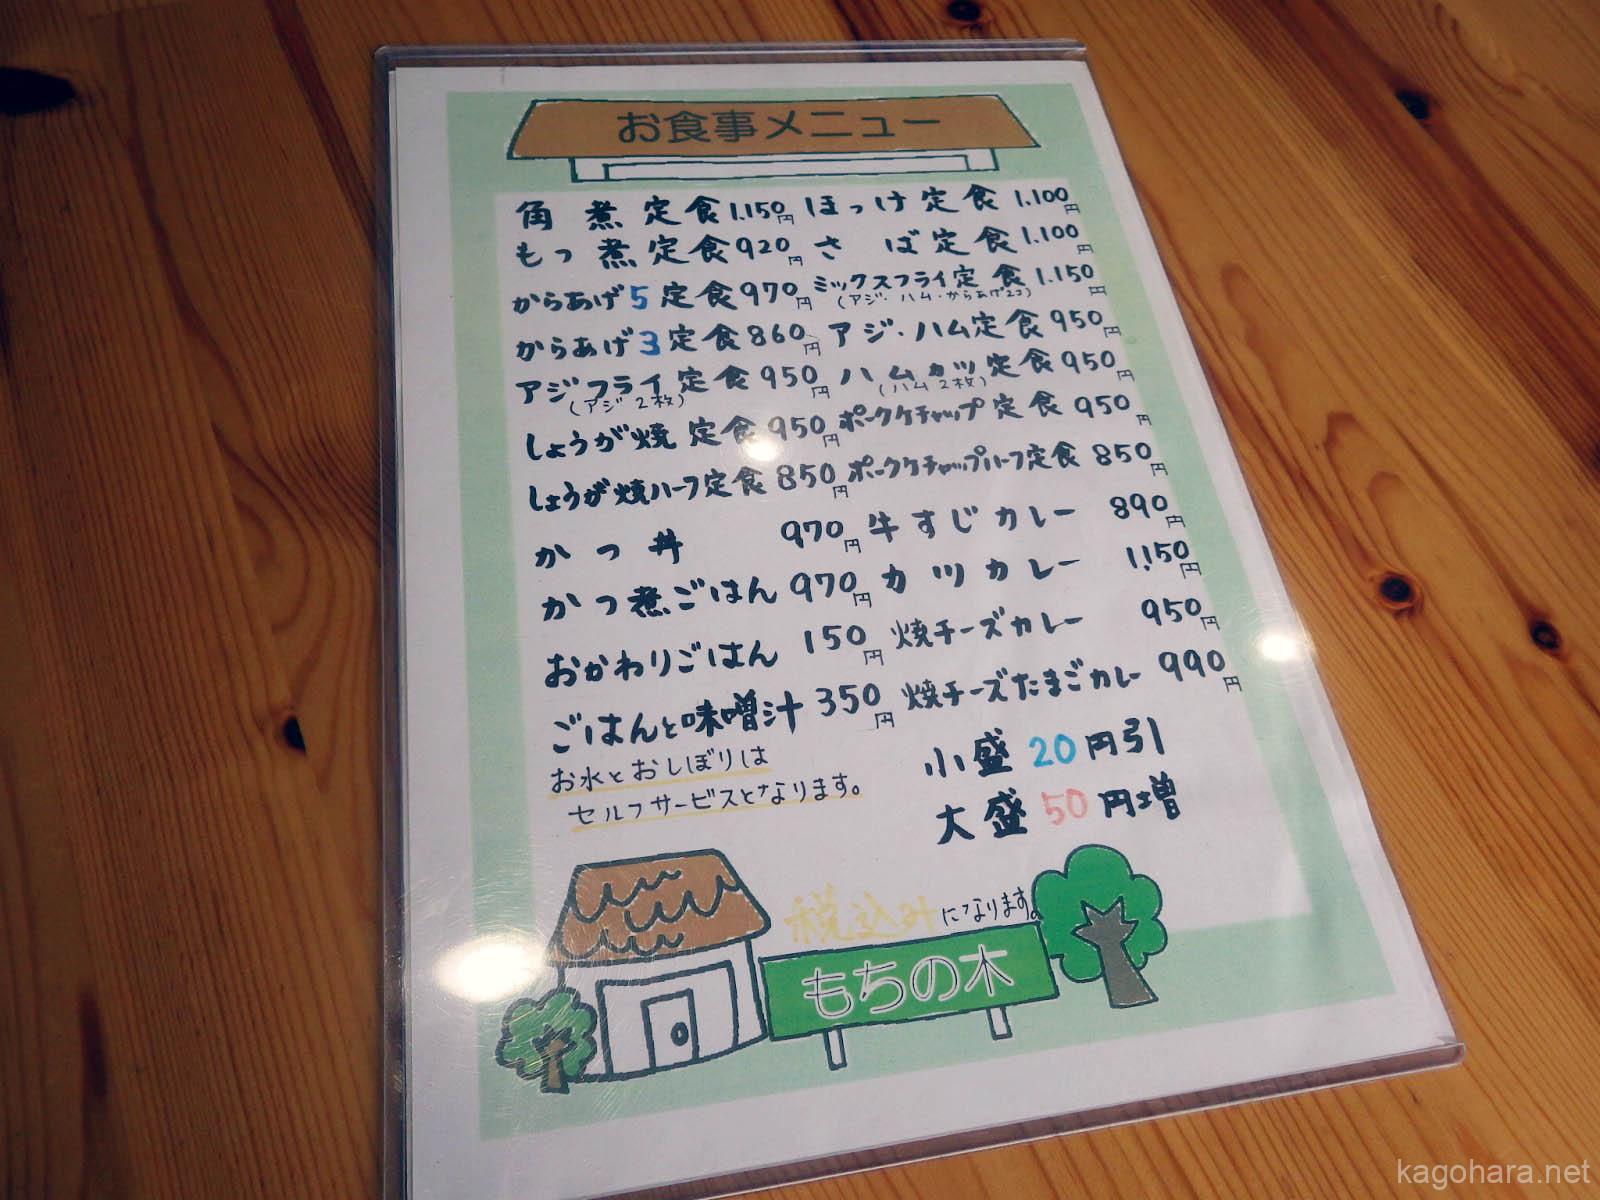 お食事メニュー
角煮定食1.150円 ほっけ定食1.100円
もつ煮定食920円 さば定食1.100円
からあげ5定食970円 ミックスフライ定食1.150円
(アジ・ハム・からあげ2コ)
からあげ3定食860円 アジ・ハム定食950円
アジフライ定食950円 ハムカツ定食950円
(アジ2枚) (ハム2枚)
しょうが焼定食950円 ポークケチャップ定食950円
しょうが焼ハーフ定食850円 ポークケチャップハーフ定食850円
かつ丼 970円 牛すじカレー 890円
かつ煮ごはん970円 カツカレー 1.150円
おかわりごはん 150円 焼チーズカレー 950円
ごはんと味噌汁350円 焼チーズたまごカレー990円
お水とおしぼりは
セルフサービスとなります。
小盛20円引
大盛50円増
税込みになります。
もちの木
kagohara.net